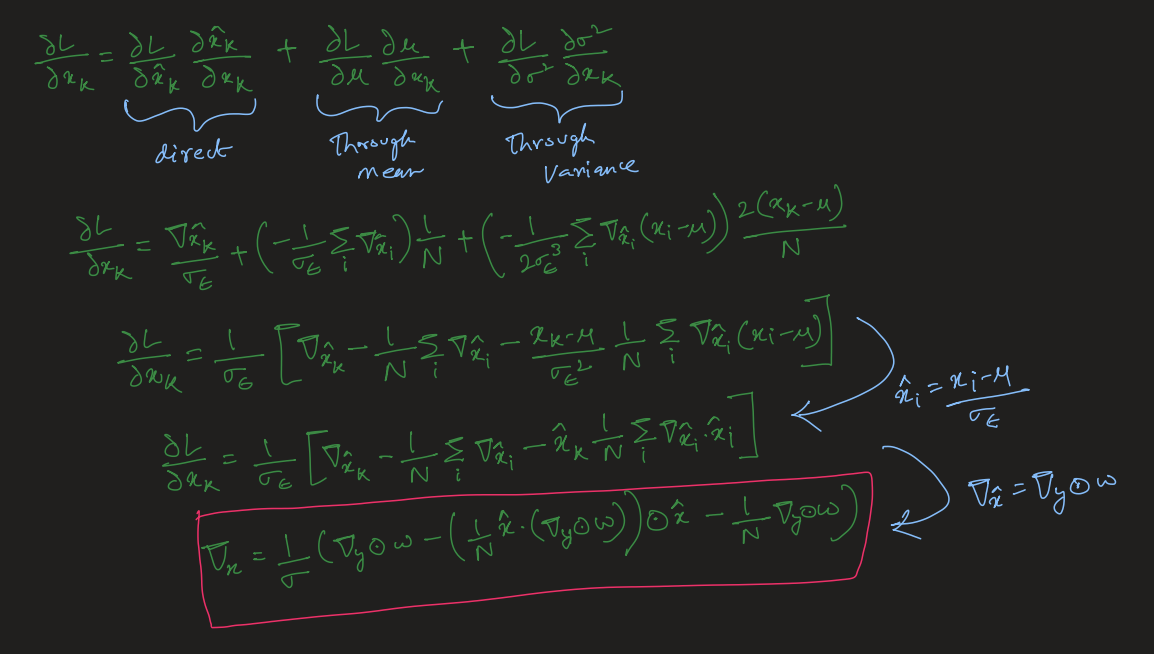 ∂L/∂x_K = ∂L/∂x̂_K ∂x̂_K/∂x_K + ∂L/∂μ ∂μ/∂x_K + ∂L/∂σ² ∂σ²/∂x_K
direct
Through
mean
Through
Variance
∂L/∂x_K = ∇x̂_K/σ_ϵ + (-1/σ_ϵ Σ_i ∇x̂_i) 1/N + (-1/2σ_ϵ³ Σ_i ∇x̂_i (x_i-μ)) 2(x_K-μ)/N
∂L/∂x_K = 1/σ_ϵ [∇x̂_K - 1/N Σ_i ∇x̂_i - x_K-μ/σ_ϵ² 1/N Σ_i ∇x̂_i (x_i-μ)]
x̂_i = x_i-μ/σ_ϵ
∂L/∂x_K = 1/σ_ϵ [∇x̂_K - 1/N Σ_i ∇x̂_i - x̂_K 1/N Σ_i ∇x̂_i·x̂_i]
∇x̂ = ∇y⊙w
∇x = 1/σ (∇y⊙w - (1/N x̂·(∇y⊙w))⊙x̂ - 1/N ∇y⊙w)